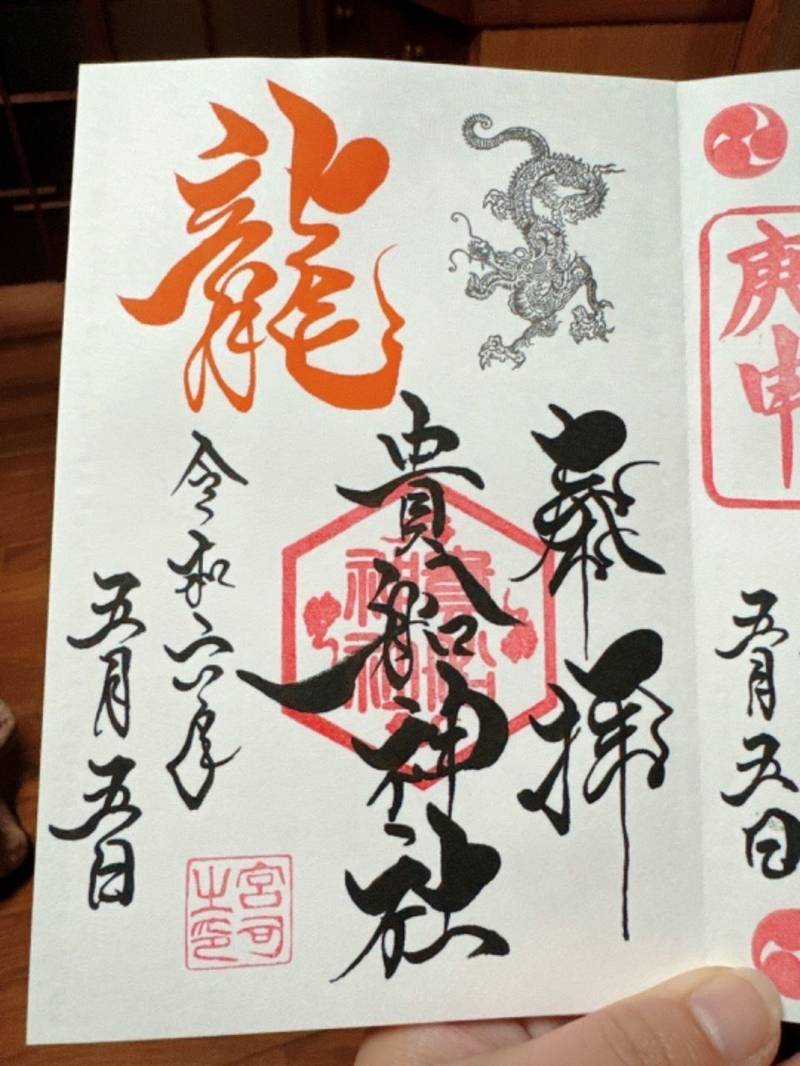 庚申
五月五日
奉拝
貴船神社
貴船
神社
龍
令和六年
五月五日
宮司
之印